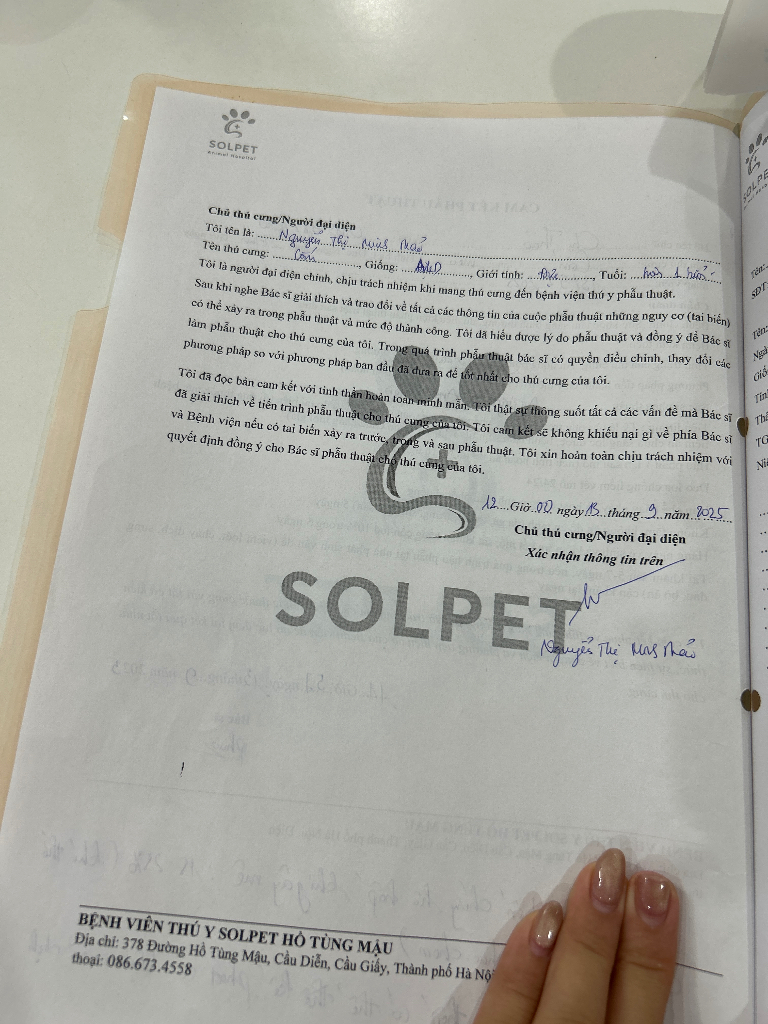 SOLPET
Animal Hospital
Chủ thú cưng/Người đại diện
Tôi tên là: Nguyễn Thị Minh Thảo
Tên thú cưng: , Giống: ALD, Giới tính: Đực, Tuổi: hơn 1 năm
Tôi là người đại diện chính, chịu trách nhiệm khi mang thú cưng đến bệnh viện thú y phẫu thuật.
Sau khi nghe Bác sĩ giải thích và trao đổi về tất cả các thông tin của cuộc phẫu thuật những nguy cơ (tai biến)
có thể xảy ra trong phẫu thuật và mức độ thành công. Tôi đã hiểu được lý do phẫu thuật và đồng ý để Bác sĩ
làm phẫu thuật cho thú cưng của tôi. Trong quá trình phẫu thuật bác sĩ có quyền điều chỉnh, thay đổi các
phương pháp so với phương pháp ban đầu đã đưa ra để tốt nhất cho thú cưng của tôi.
Tôi đã đọc bản cam kết với tinh thần hoàn toàn minh mẫn. Tôi thật sự thông suốt tất cả các vấn đề mà Bác sĩ
đã giải thích về tiến trình phẫu thuật cho thú cưng của tôi. Tôi cam kết sẽ không khiếu nại gì về phía Bác sĩ
và Bệnh viện nếu có tai biến xảy ra trước, trong và sau phẫu thuật. Tôi xin hoàn toàn chịu trách nhiệm với
quyết định đồng ý cho Bác sĩ phẫu thuật cho thú cưng của tôi.
12 Giờ 00 ngày 13 tháng 9 năm 2025
Chủ thú cưng/Người đại diện
Xác nhận thông tin trên
SOLPET
Nguyễn Thị Minh Thảo
BỆNH VIỆN THÚ Y SOLPET HỒ TÙNG MẬU
Địa chỉ: 378 Đường Hồ Tùng Mậu, Cầu Diễn, Cầu Giấy, Thành phố Hà Nội
thoại: 086.673.4558
SOLPE
Tên:
SĐT
Tên:
Ngà
Giố
Tìn
Thể
TG
Niê